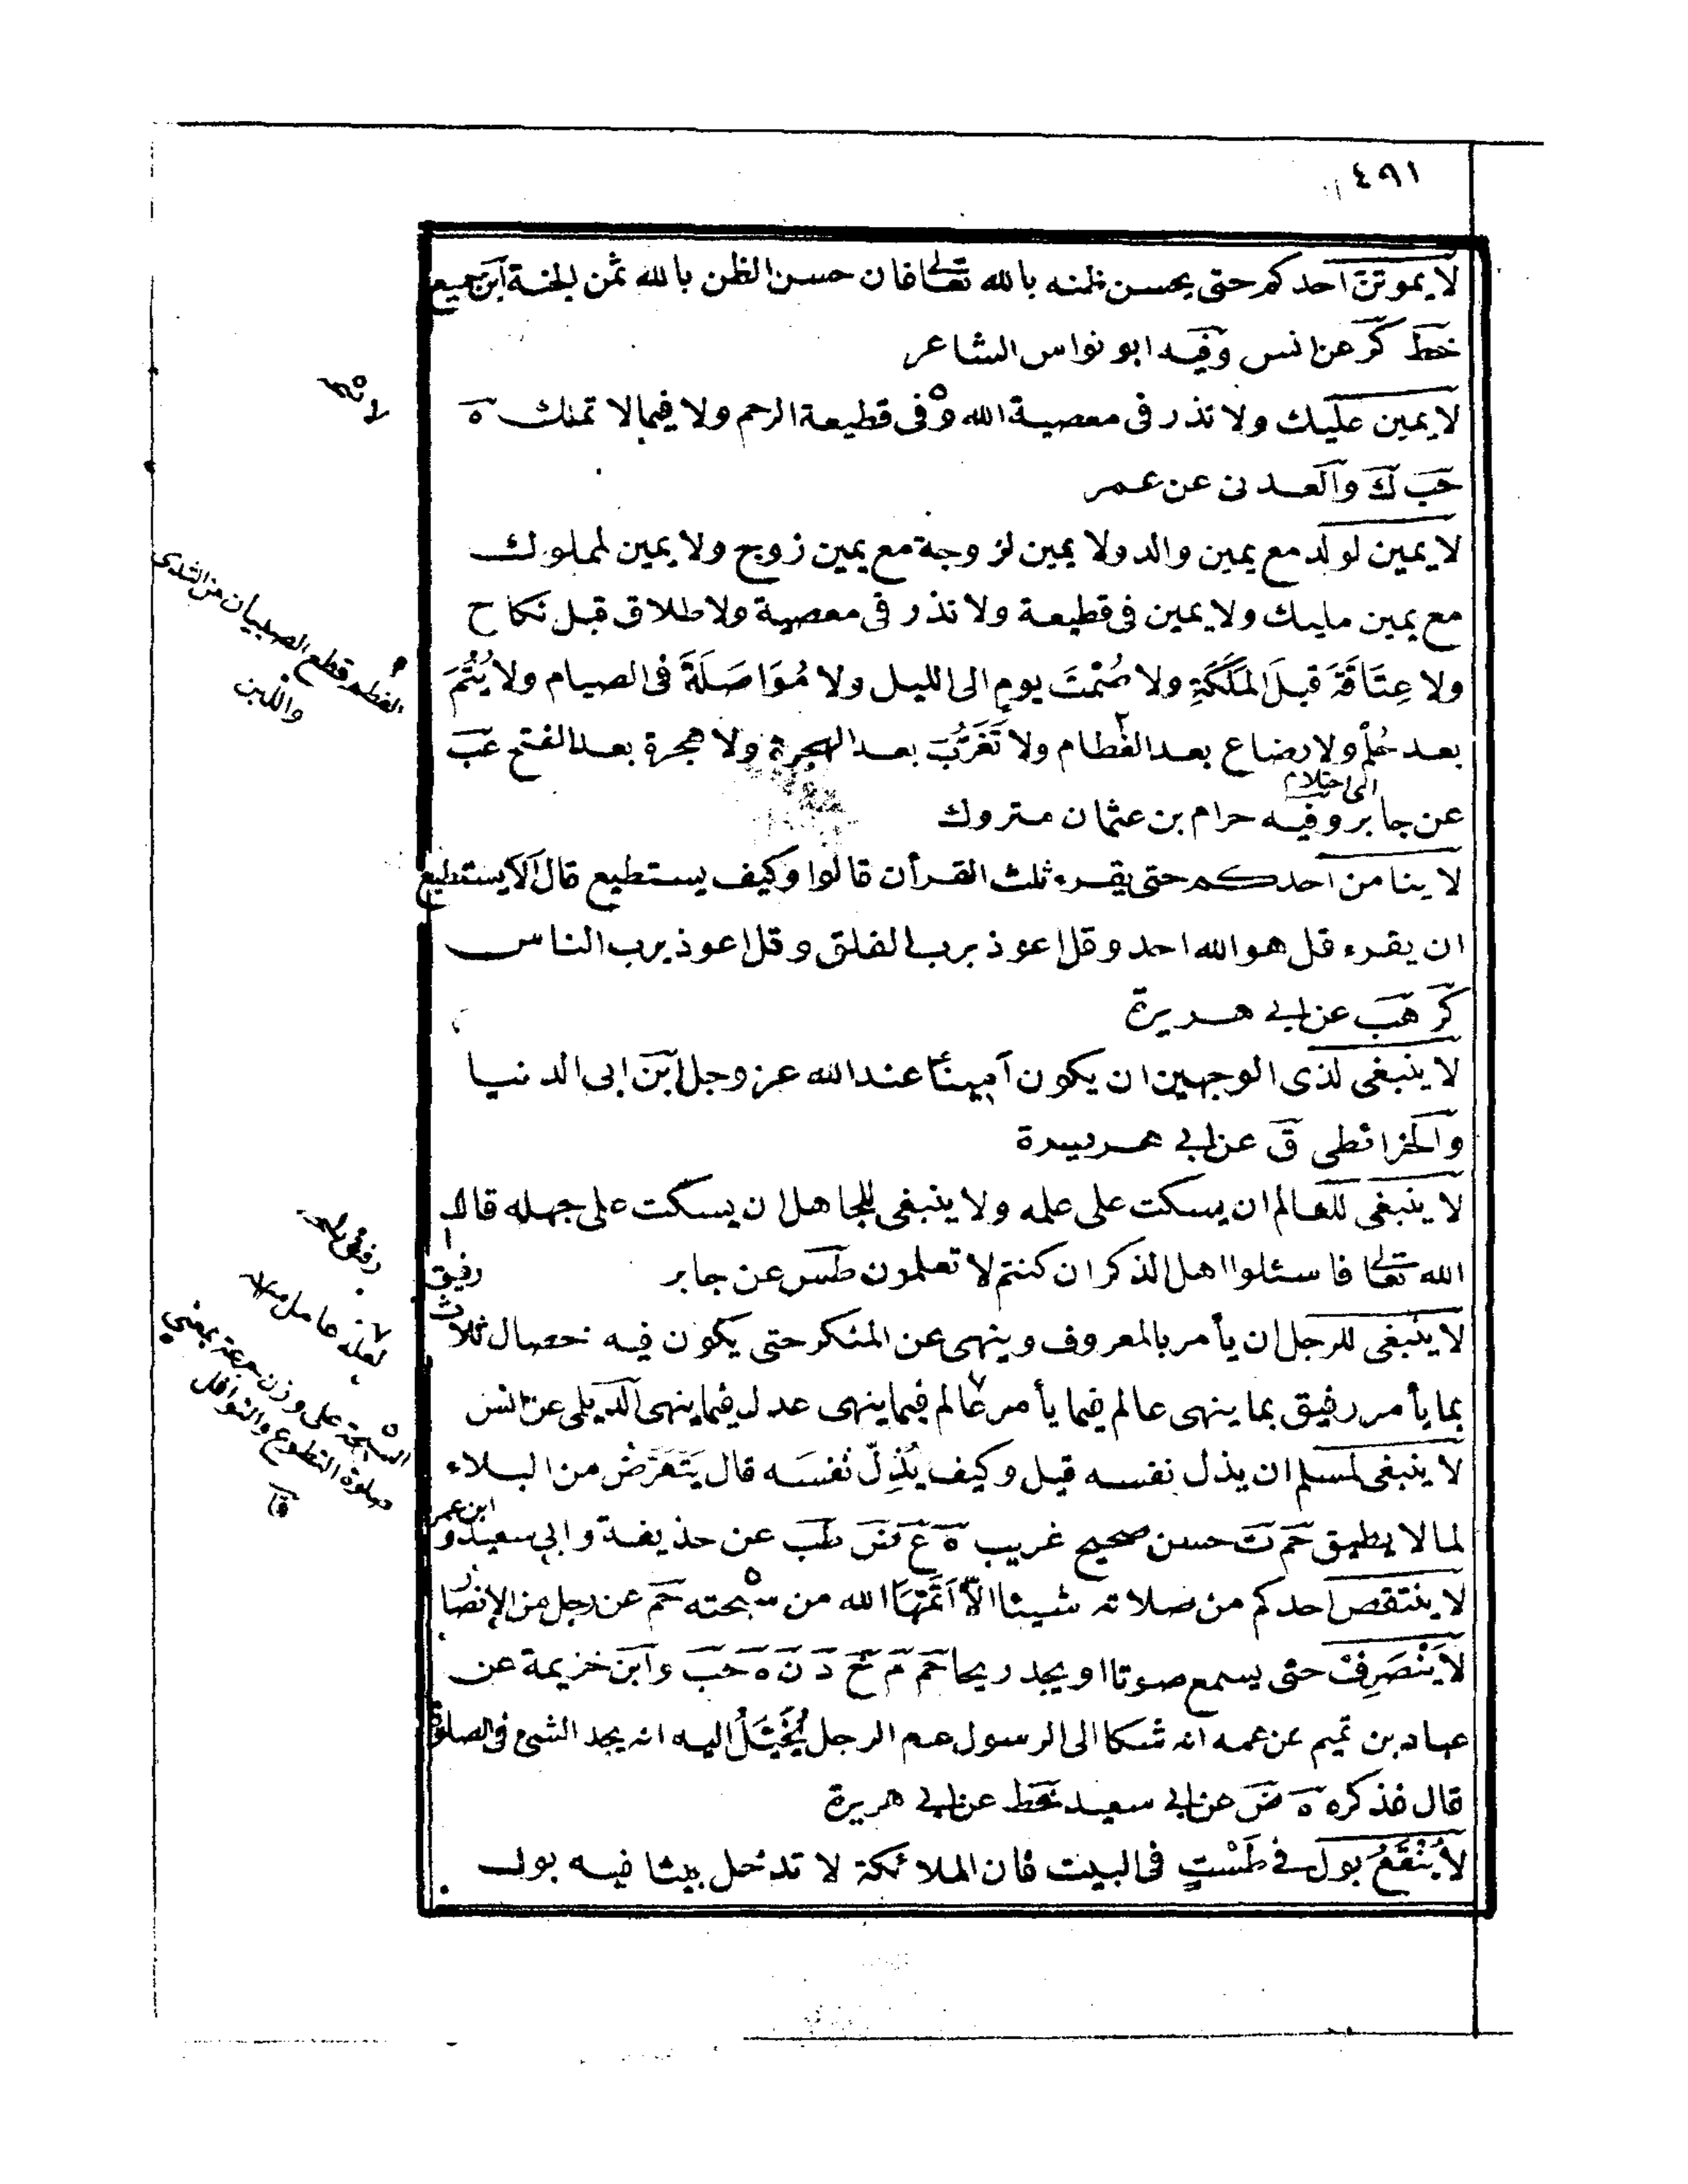 ٤٩١
لا يموتن احدكم حتى يحسن ظنه بالله تعالى فان حسن الظن بالله ثمن الجنة ابن جميع
خط كر عن انس وفيه ابو نواس الشاعر
لا يمين عليك ولا نذر فى معصية الله و فى قطيعة الرحم ولا فيما لا تملك ه
حب ك والعدنى عن عمر
لا يمين لولد مع يمين والد ولا يمين لزوجة مع يمين زوج ولا يمين لمملوك
مع يمين مليك ولا يمين فى قطيعة ولا نذر فى معصية ولا طلاق قبل نكاح
ولا عِتَاقَةَ قبلَ المَلَكَةِ ولا صُمْتَ يومٍ الى الليل ولا مُوَاصَلَةَ فى الصيام ولا يُتْمَ
بعد حُلْم ولا رضاع بعد الفطام ولا تَغَرُّبَ بعد الهجرة ولا هجرة بعد الفتح عب
اى احتلام
عن جابر وفيه حرام بن عثمان متروك
لا ينامن احدكم حتى يقرء ثلث القرأن قالوا وكيف يستطيع قال الا يستطيع
ان يقرء قل هو الله احد وقل اعوذ برب الفلق وقل اعوذ برب الناس
كر هب عن ابى هريرة
لا ينبغى لذى الوجهين ان يكون امينا عند الله عز وجل ابن ابى الدنيا
والخرائطى ق عن ابى هريرة
لا ينبغى للعالم ان يسكت على علمه ولا ينبغى للجاهل ان يسكت على جهله قال
الله تعالى فاسئلوا اهل الذكر ان كنتم لا تعلمون طس عن جابر
رفيق
لا ينبغى للرجل ان يأمر بالمعروف وينهى عن المنكر حتى يكون فيه خصال ثلاث
بما يأمر رفيق بما ينهى عالم فيما يأمر عالم فيما ينهى عدل فيما ينهى الديلى عن انس
لا ينبغى لمسلم ان يذل نفسه قيل وكيف يُذِلّ نفسَه قال يَتَعَرَّضُ من البلاء
ابن عمر
لما لا يطيق حم ت حسن صحيح غريب ه ع ض طب عن حذيفة وابى سعيد و
لا ينتقص احدكم من صلاته شيئا الا اَتَمَّهَا الله من سبحته حم عن رجل من الانصار
لا يَنْصَرِفْ حتى يسمع صوتا او يجد ريحا حم م خ د ن ه حب وابن خزيمة عن
عباد بن تميم عن عمه انه شكا الى الرسول عم الرجل يُخَيَّلُ اليه انه يجد الشئ فى الصلوة
قال فذكره ه ض عن ابى سعيد خط عن ابى هريرة
لا يُنْقَعُ بول فى طَسْتٍ فى البيت فان الملائكة لا تدخل بيتا فيه بول
الفطم قطع الصبيان من الثدى
واللبن
السبحة على وزن سرعة بمعنى
صلوة التطوع والنوافل